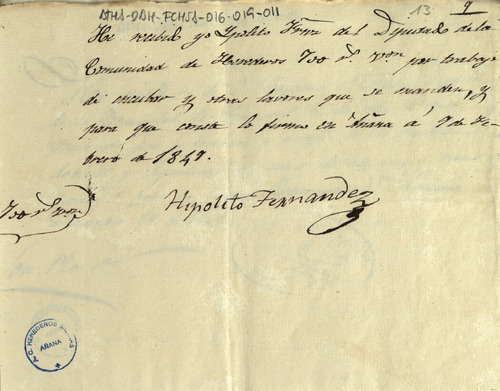 ATHA-DAH-FCHSA-016.019-011
13
9
He recibido yo Ypolito Frnz del Diputado de la
Comunidad de Herederos 700 rs. von por trabajo
de encubar y otras lavores que se mandan, y
para que conste lo firmo en Añana á 9 de Fe-
brero de 1849.
700 rs. von
Hipolito Fernandez
C. HEREDEROS
AÑANA